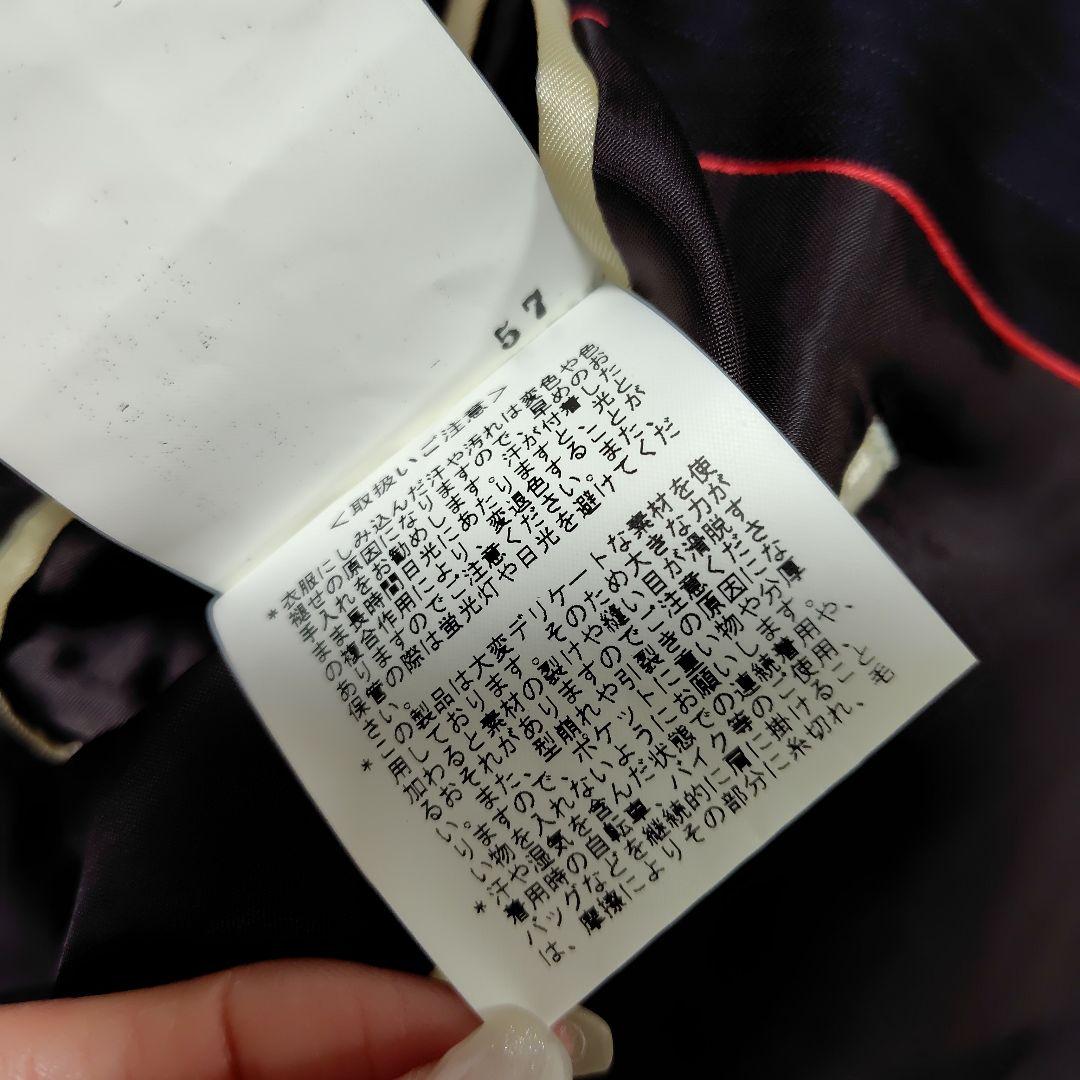 57
<取扱いご注意>
*衣服にしみ込んだ汗や汚れは変色や色
褪せの原因になりますので、早めのお
手入れをお勧めします。汗が付着した
まま長時間日光にあたりますと、光と
の複合作用により、変退色することが
ありますのでご注意ください。また、
保管の際は蛍光灯や日光を避けてくだ
さい。
*この製品は大変デリケートな素材を使
用しております。そのため大きな力が
加わると素材の裂けや縫い目が滑脱す
るおそれがありますのでご注意くださ
い。また、型崩れや引裂きの原因にな
りますので、ポケットに重い物や分厚
い物を入れないようにお願いします。
*汗や湿気を含んだ状態での連続着用や、
着用時の自転車、バイク等のご使用、
バッグなどを継続的に肩に掛けること
は、摩擦によりその部分に糸切れ、毛